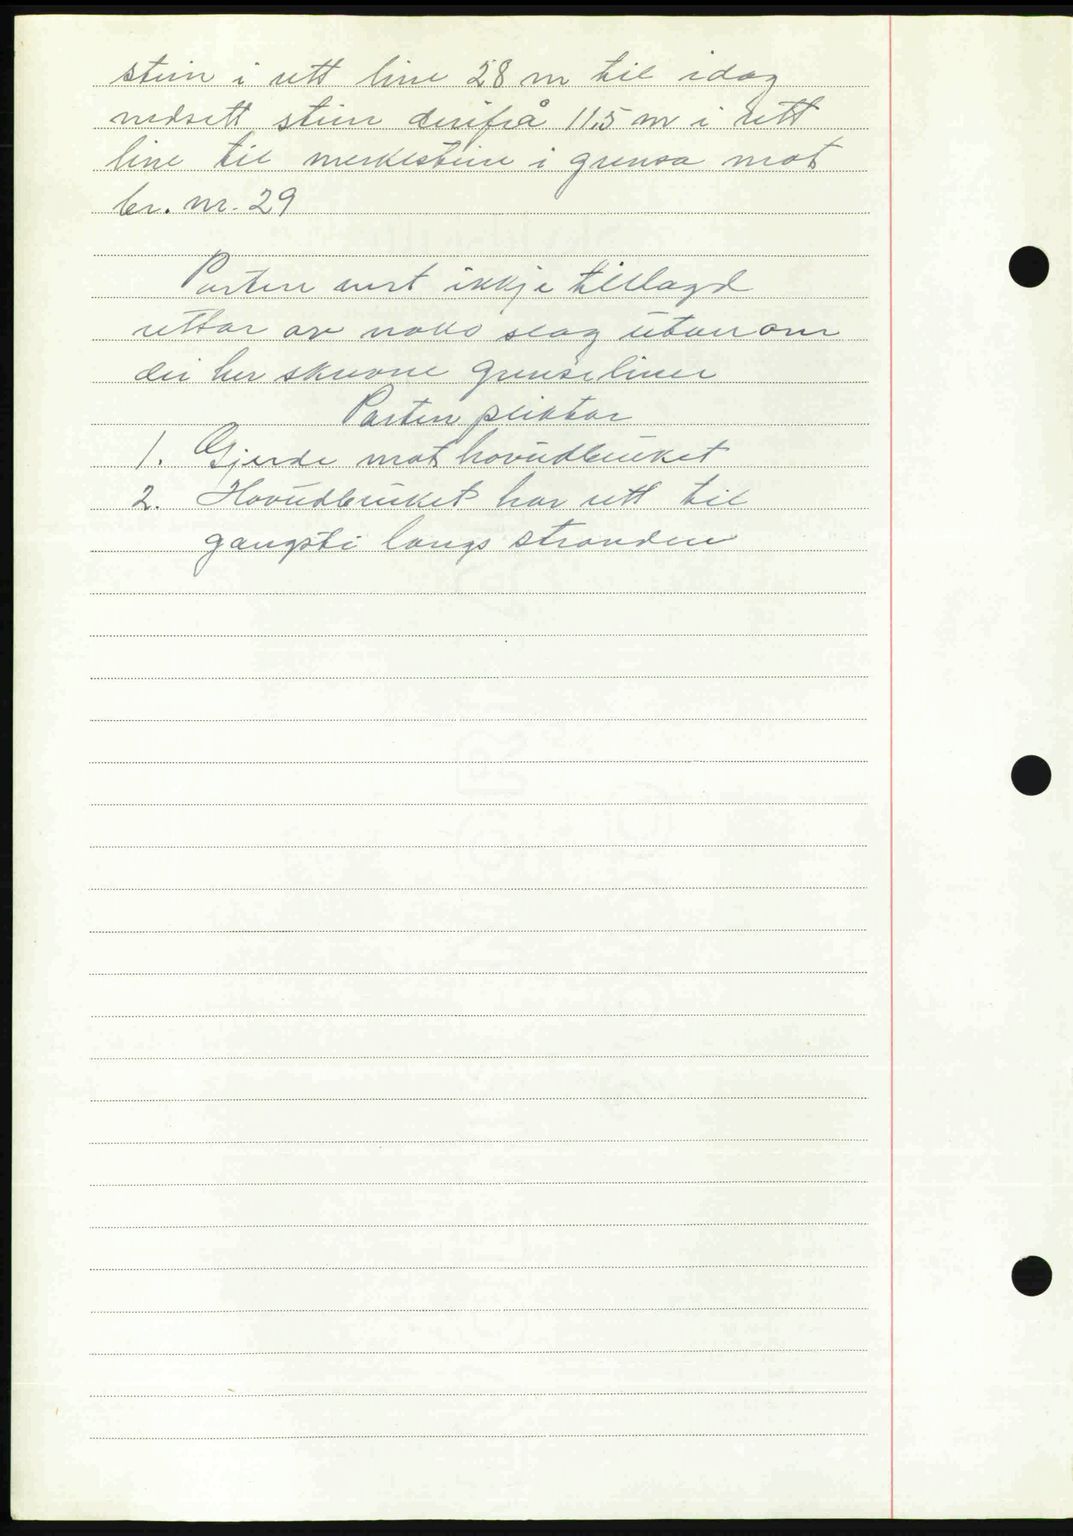 stein i rett line 28 m til idag
nedsett stein derifrå 11,5 m i rett
line til merkestein i grensa mot
br. nr. 29
Parten vert ikkje tillagd
rettar av noko slag utanom
dei her skrevne grenseliner
Parten pliktar
1. Gjerde mot hovudbruket
2. Hovudbruket har rett til
gangsti langs stranden